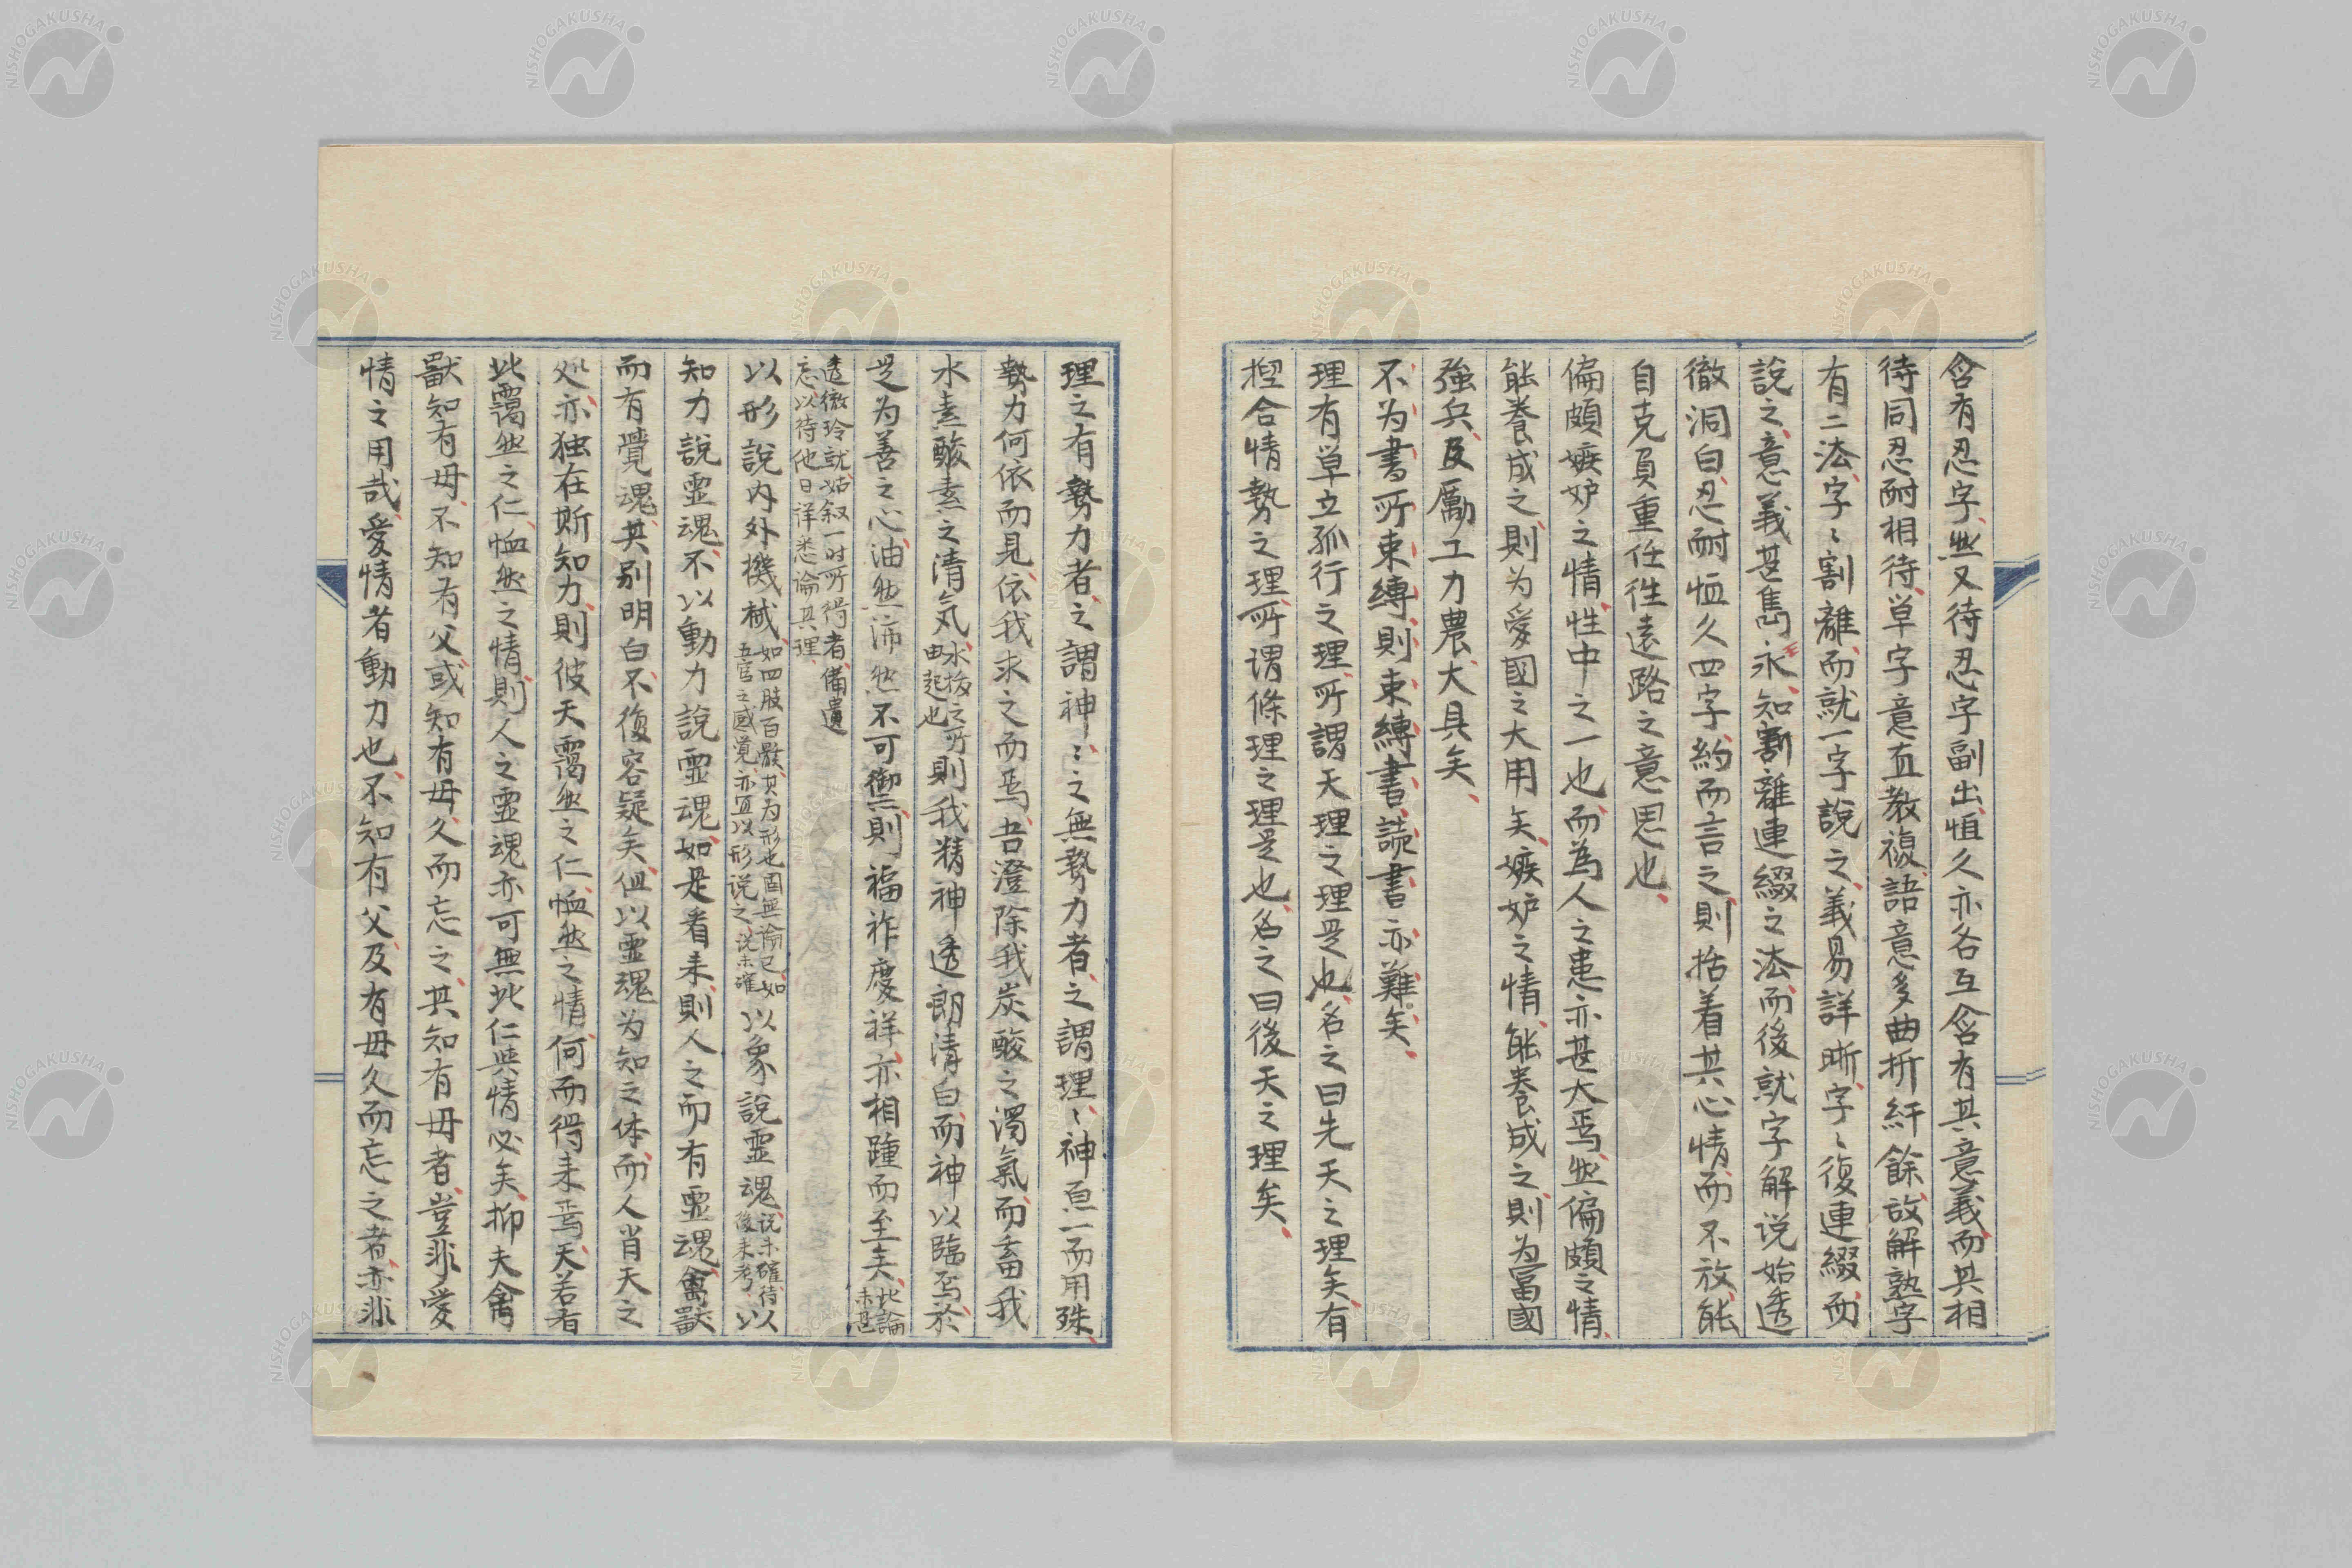 含有忍字、然又待忍字副出、恒久亦各互含有其意義、而其相
待同忍耐相待、単字意直教複語意多曲折紆餘、故解熟字
有二法、字〻割離、而就一字説之、義易詳晰、字〻復連綴、而
説之、意義甚雋永、知割離連綴之法、而後就字解说始透
徹洞白、忍耐恒久四字、約而言之、則括着其心情、而不放、能
自克負重任徃遠路之意思也、
偏頗嫉妒之情、性中之一也、而為人之患亦甚大焉、然偏頗之情、
能養成之、則为愛國之大用矣、嫉妒之情、能養成之、則为富國
強兵、及厲工力農、大具矣、
不为書所束縛、則束縛書、読書亦難矣、
理有単立孤行之理、所謂天理之理是也、名之曰先天之理矣、有
揑合情勢之理、所谓條理之理是也、名之曰後天之理矣、
理之有勢力者、之謂神〻之無勢力者、之謂理〻神亙一而用殊、
勢力何依而見、依我求之而焉、吾澄除我炭酸之濁氣、而畜我
水素酸素之清気 水抜之所由起也 則我精神透朗清白、而神以臨焉、於
是为善之心、油然沛然不可禦、則福祚慶祥亦相踵而至矣、此論未思
透徹玲就、姑叙一时所得者、備遺
忘、以待他日詳悉論其理、
以形説内外機械、如四肢百骸、其为形也固無論已、如五官之感覚、亦宜以形说之、说未確 以象說霊魂、说未確待後来考、以
知力説霊魂、不以動力説霊魂、如是看来、則人之而有霊魂、禽獣
而有覺魂、其別明白不復容疑矣、但以霊魂为知之体、而人肖天之
処、亦独在斯知力、則彼天靄然之仁、恤然之情、何而得来焉、天若有
此靄然之仁、恤然之情、則人之霊魂亦可無此仁與情必矣、抑夫禽
獣知有母、不知有父、或知有母、久而忘之、其知有母者、豈非愛
情之用哉、愛情者動力也、不知有父、及有母久而忘之者、亦非
NISHOGAKUSHA